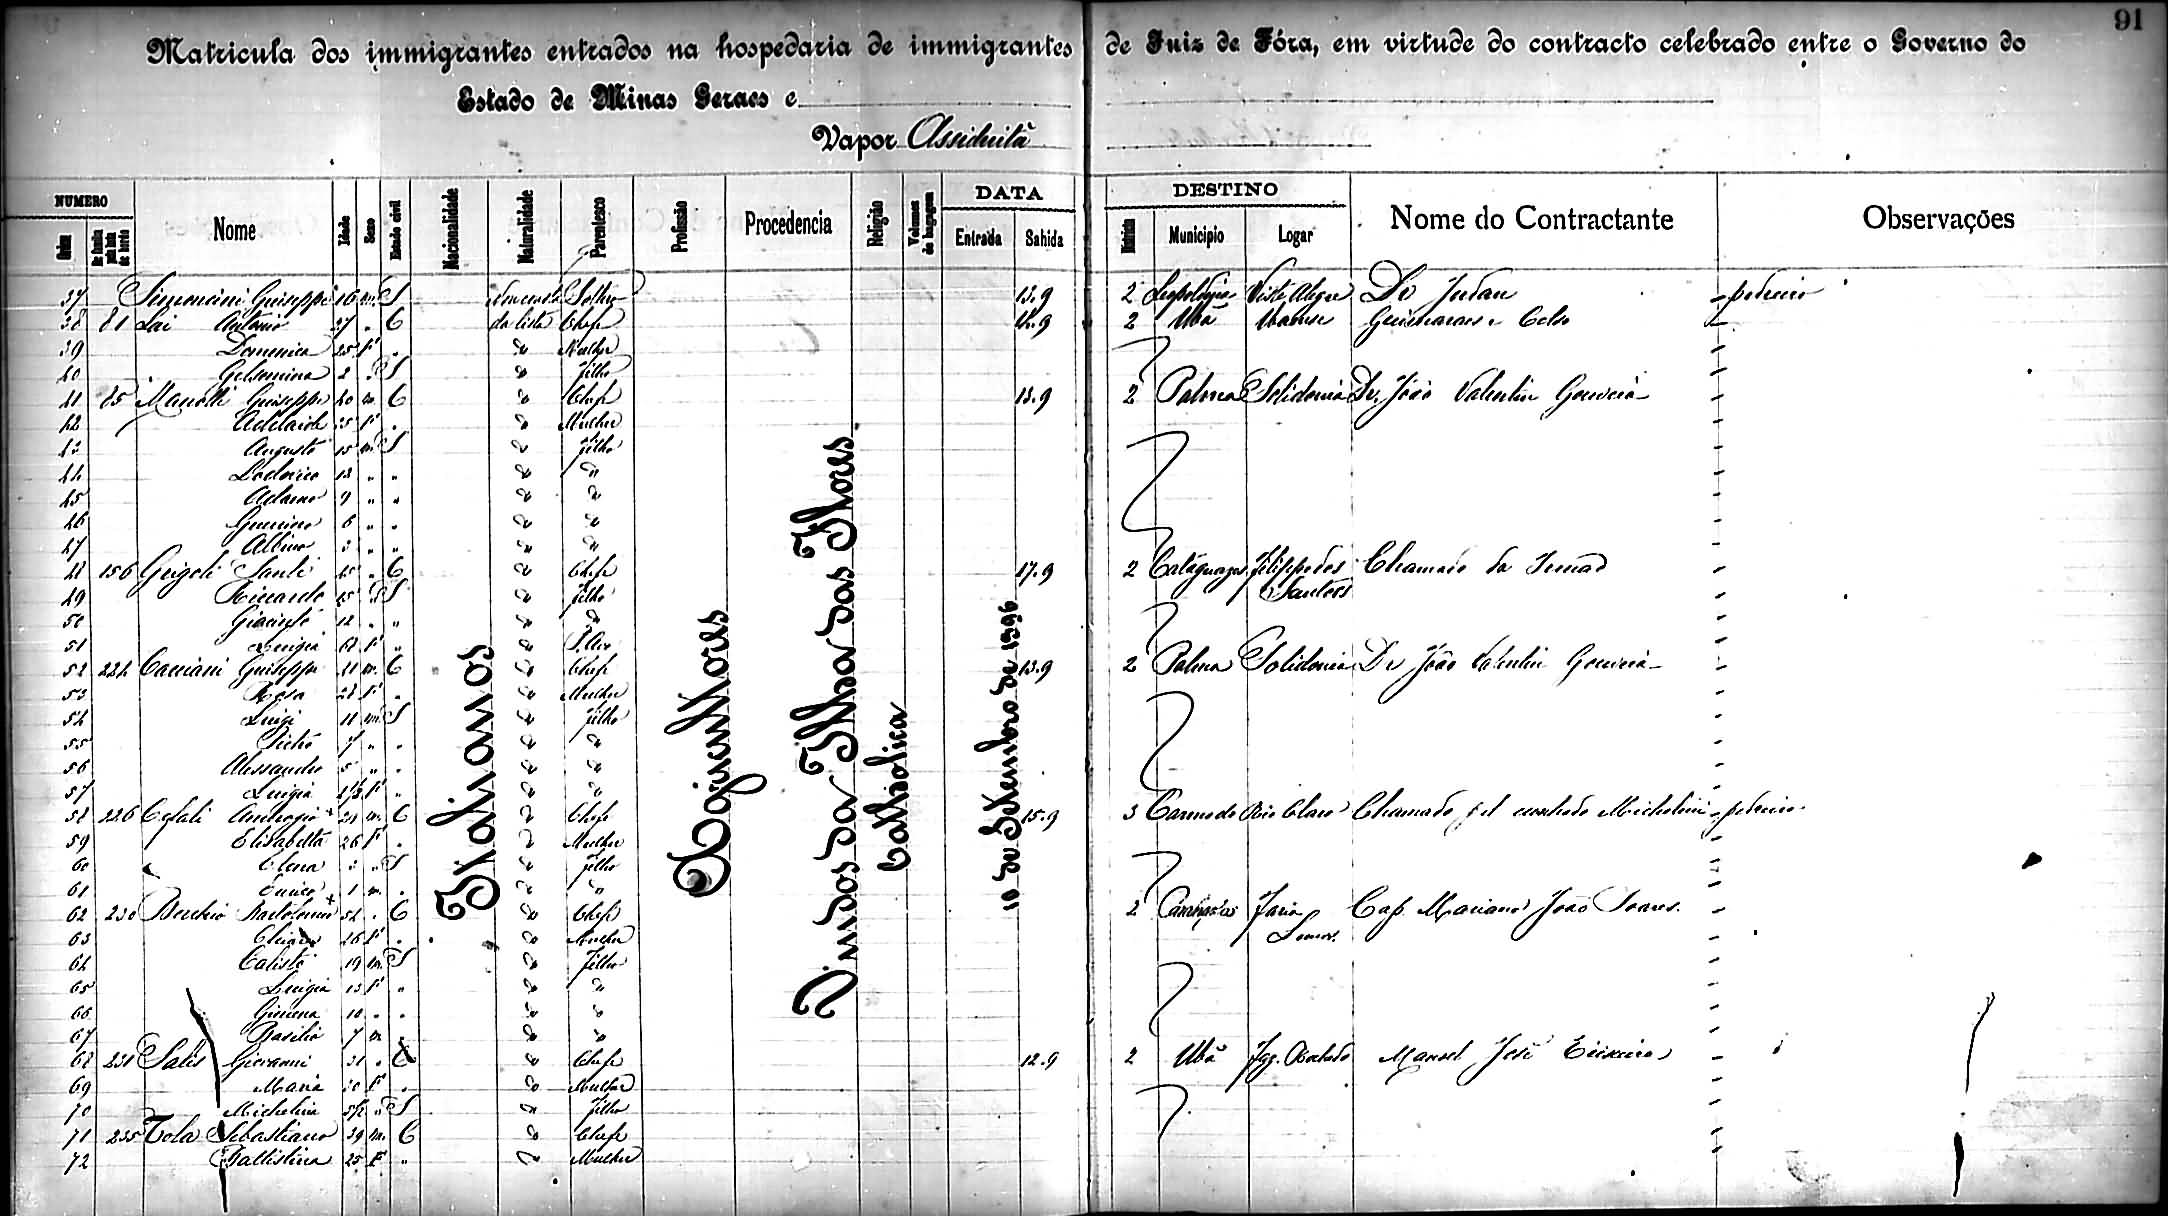 91
Matricula dos immigrantes entrados na hospedaria de immigrantes de Juiz de Fóra, em virtude do contracto celebrado entre o Governo do
Estado de Minas Geraes e
Vapor Assiduitá
NUMERO Nome Idade Sexo Estado civil Nacionalidade Naturalidade Parentesco Profissão Procedencia Religião Volumes de bagagem DATA DESTINO Nome do Contractante Observações
Ordem de familia pela lista de bordo Entrada Sahida Districto Municipio Logar
Italianos
Agricultores
Vindos da Ilha das Flores
Catholica
10 de Setembro de 1896
37 Simoncini Guiseppe 16 m. S Solteiro 13.9 2 Leopoldina Vista Alegre Dr pedreiro
38 81 Lai Antonio 27 " C da lista Chefe 2 Ubá Guimaraes e Celso
39 Domenica 25 F " Mulher
40 Gelsomina 2 " S filho
41 85 Guiseppe 40 m. C Chefe 13.9 2 Palma Solidonia Dr. João Valentin Gouveia
42 Adelaide 35 F " Mulher
43 Augusto 15 m. S filho
44 Lodovico 13 " "
45 Adamo 9 " "
46 Guerrino 6 " "
47 Albino 3 " "
48 156 Grigoli Santi 45 " C Chefe 17.9 2 Cataguazes Filippe dos Santos Chamado do Irmão
49 Riccardo 15 " S filho
50 Giacinto 12 " "
51 Luigia F "
52 224 Canciani Guiseppe 41 m. C Chefe 13.9 2 Palma Solidonia Dr João Valentin Gouveia
53 Rosa 28 F " Mulher
54 Luigi 11 m. S filho
55 Pietro 7 " "
56 Alessandro 5 " "
57 Luigia F "
58 226 Cefali Ambrogio 28 m. C Chefe 15.9 3 Carmo do Rio Claro Chamado pel cunhado Michelini pedreiro
59 Elisabetta 26 F " Mulher
60 Elena 3 " S filho
61 Enrico 1 m. "
62 230 Berchio Bartolomeo 52 " C Chefe 2 Faria Lemos Cap. Mariano João Soares.
63 Chiara 46 F " Mulher
64 Calisto 19 m. S filho
65 Luigia 13 F "
66 10 " "
67 Basilio 7 m "
68 231 Salis Giovanni 31 " C Chefe 12.9 2 Ubá Manoel José Teixeira
69 Maria 30 F " Mulher
70 Michelina " S filho
71 235 Tola Sebastiano 39 m. C Chefe
72 Battistina 25 F " Mulher